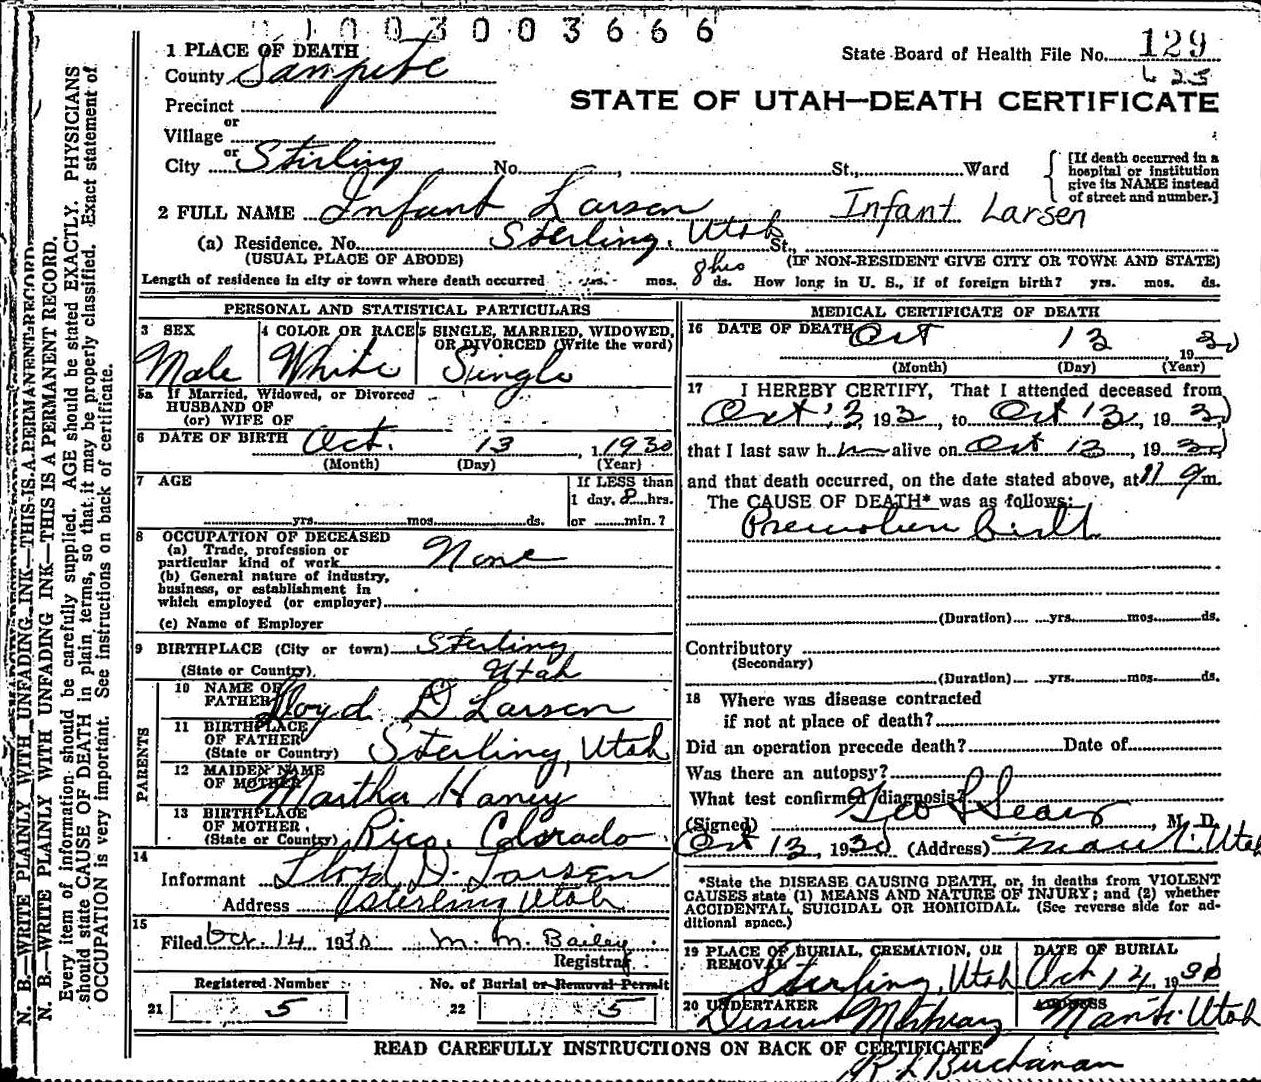 0 1 0 0 3 0 0 3 6 6 6
1 PLACE OF DEATH
State Board of Health File No. 129
County Sanpete
625
STATE OF UTAH—DEATH CERTIFICATE
Precinct
or
Village
or
City Stirling No. , St., Ward
[If death occurred in a
hospital or institution
give its NAME instead
of street and number.]
2 FULL NAME Infant Larsen Infant Larsen
(a) Residence. No. Sterling, Utah St.,
(USUAL PLACE OF ABODE) (IF NON-RESIDENT GIVE CITY OR TOWN AND STATE)
Length of residence in city or town where death occurred yrs. mos. 8 hrs ds. How long in U. S., if of foreign birth? yrs. mos. ds.
PERSONAL AND STATISTICAL PARTICULARS
3 SEX
Male
4 COLOR OR RACE
White
5 SINGLE, MARRIED, WIDOWED,
OR DIVORCED (Write the word)
Single
5a If Married, Widowed, or Divorced
HUSBAND OF
(or) WIFE OF
6 DATE OF BIRTH Oct. 13, 1930
(Month) (Day) (Year)
7 AGE
yrs. mos. ds.
If LESS than
1 day, 8 hrs.
or min.?
8 OCCUPATION OF DECEASED
(a) Trade, profession or
particular kind of work None
(b) General nature of industry,
business, or establishment in
which employed (or employer)
(c) Name of Employer
9 BIRTHPLACE (City or town) Sterling
(State or Country) Utah
PARENTS
10 NAME OF
FATHER Lloyd D Larsen
11 BIRTHPLACE
OF FATHER
(State or Country) Sterling, Utah
12 MAIDEN NAME
OF MOTHER Martha Haney
13 BIRTHPLACE
OF MOTHER
(State or Country) Rico, Colorado
14
Informant Lloyd D. Larsen
Address Sterling Utah
15
Filed Oct. 14 1930 M. M. Bailey
Registrar
Registered Number
21 5
No. of Burial or Removal Permit
22 5
MEDICAL CERTIFICATE OF DEATH
16 DATE OF DEATH Oct 13, 1930
(Month) (Day) (Year)
17 I HEREBY CERTIFY, That I attended deceased from
Oct 13, 1930, to Oct 13, 1930
that I last saw h im alive on Oct 13, 1930
and that death occurred, on the date stated above, at 11 m.
The CAUSE OF DEATH* was as follows:
birth
(Duration) yrs. mos. ds.
Contributory
(Secondary)
(Duration) yrs. mos. ds.
18 Where was disease contracted
if not at place of death?
Did an operation precede death? Date of
Was there an autopsy?
What test confirmed diagnosis?
(Signed) Geo L Sears, M. D.
Oct 13, 1930 (Address) Manti, Utah
*State the DISEASE CAUSING DEATH, or, in deaths from VIOLENT
CAUSES state (1) MEANS AND NATURE OF INJURY; and (2) whether
ACCIDENTAL, SUICIDAL OR HOMICIDAL. (See reverse side for ad-
ditional space.)
19 PLACE OF BURIAL, CREMATION, OR
REMOVAL
Sterling, Utah
DATE OF BURIAL
Oct 14 1930
20 UNDERTAKER
Deseret Mortuary
ADDRESS
Manti, Utah
READ CAREFULLY INSTRUCTIONS ON BACK OF CERTIFICATE
Buchanan
N. B.—WRITE PLAINLY WITH UNFADING INK—THIS IS A PERMANENT RECORD
N. B.—WRITE PLAINLY WITH UNFADING INK—THIS IS A PERMANENT RECORD.
Every item of information should be carefully supplied. AGE should be stated EXACTLY. PHYSICIANS
should state CAUSE OF DEATH in plain terms, so that it may be properly classified. Exact statement of
OCCUPATION is very important. See instructions on back of certificate.